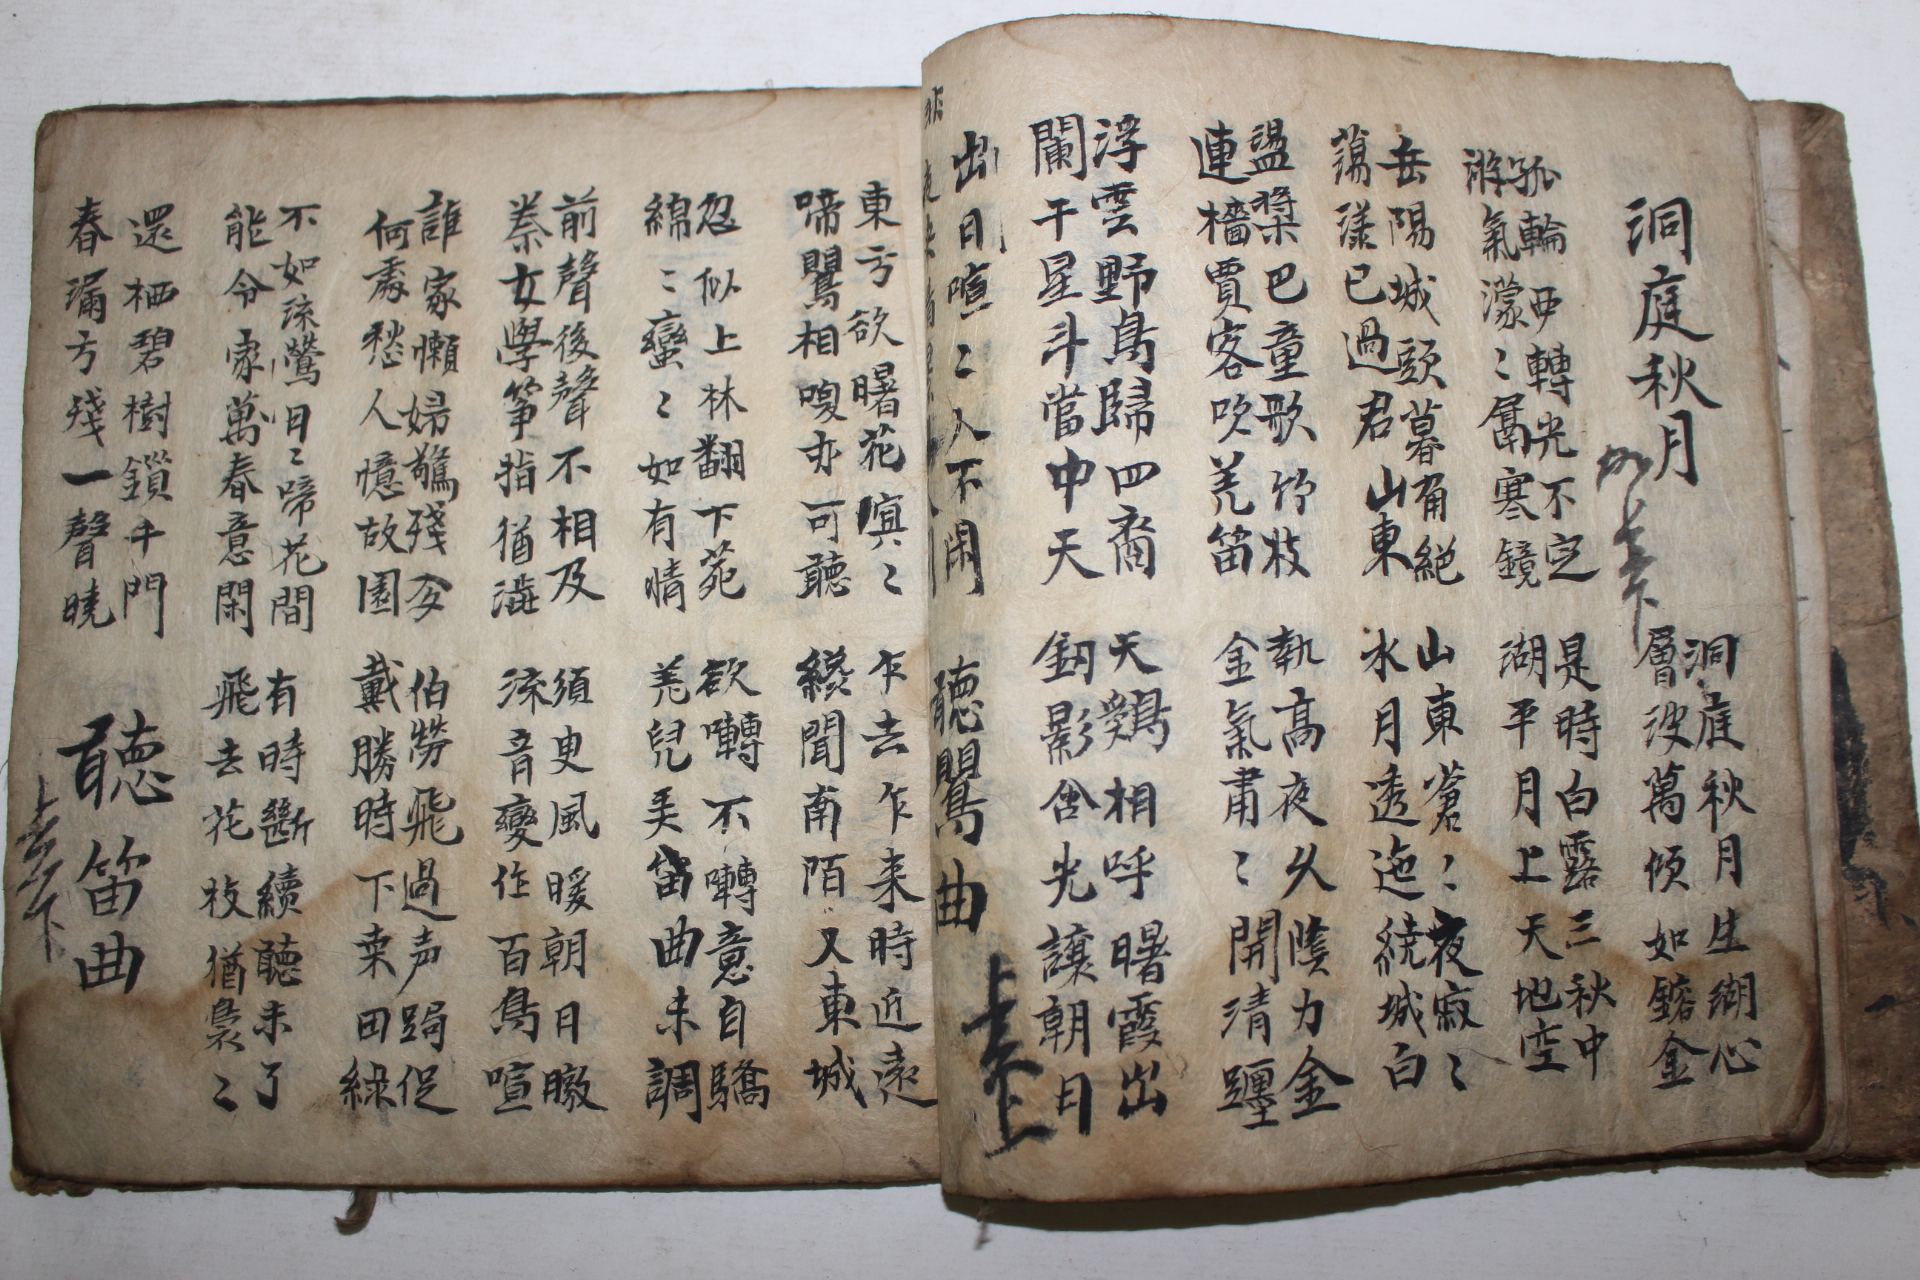 洞庭秋月
洞庭秋月生湖心
層波萬傾如鎔金
孤輪西轉光不定
游氣濛〻寒鏡
是時白露三秋中
湖平月上天地空
岳陽城頭暮角絕
蕩漾已過君山東
山東蒼〻夜寂〻
水月透迤繞城白
盪槳巴童歌竹枝
連檣賈客吹羌笛
執高夜久陰力金
金氣肅〻開清躔
浮雲野鳥歸四裔
闌干星斗當中天
天鷄相呼曙霞出
釼影含光讓朝日
出日喧〻人不閑
聽鸎曲
東方欲曙花冥〻
啼鸎相嗅亦可聽
乍去乍来時近遠
纔聞南陌又東城
忽似上林翻下苑
綿〻蠻〻如有情
欲囀不囀意自驕
羌兒弄笛曲未調
前聲後聲不相及
秦女學箏指猶澁
須臾風暖朝日暾
流音變作百鳥喧
誰家懶婦驚殘夢
何處愁人憶故園
伯勞飛過声跼促
戴勝時下桒田綠
不如流鶯日〻啼花間
能令家萬春意閑
有時斷續聽未了
飛去花枝猶裊〻
還栖碧樹鎖千門
春漏方殘一聲曉
聽笛曲